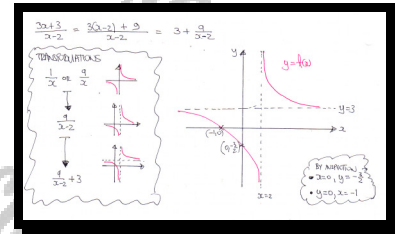 3x+3/x-2 = 3(x-2)+9/x-2 = 3 + 9/x-2
TRANSFORMATIONS
1/x or 9/x
9/x-2
9/x-2 +3
y
y=f(x)
y=3
x
(-1,0)
(0,-3/2)
x=2
BY INSPECTION
• x=0, y=-3/2
• y=0, x=-1